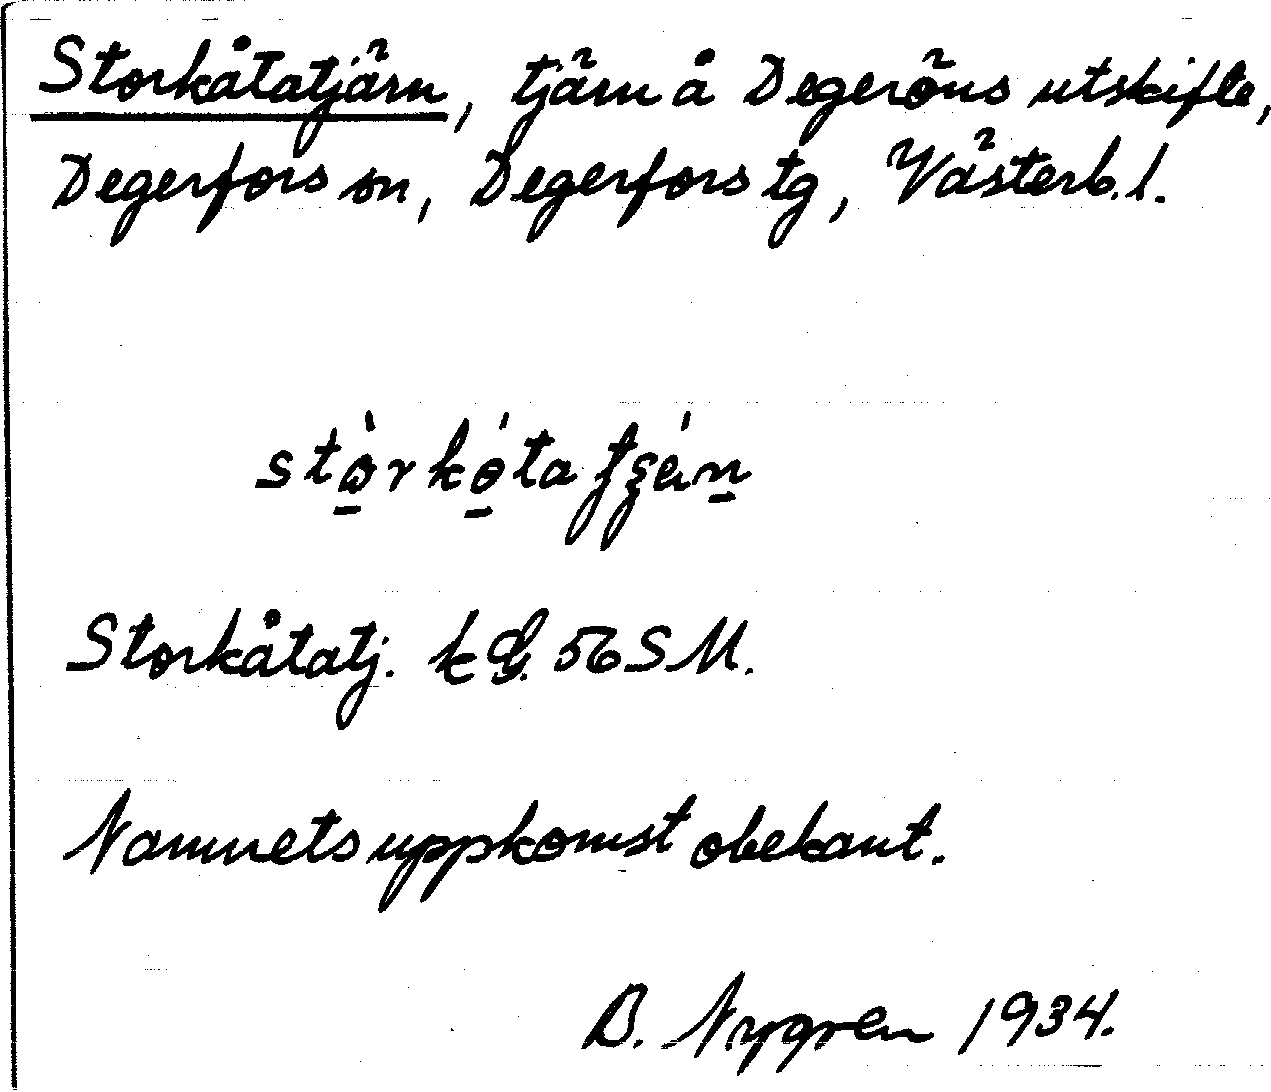 Storkåtatjärn, tjärn å Degeröns utskifte,
Degerfors sn, Degerfors tg, Västerb. l.
Storkåtatj. k G. 56 SM.
Namnets uppkomst obekant.
B. Nygren 1934.